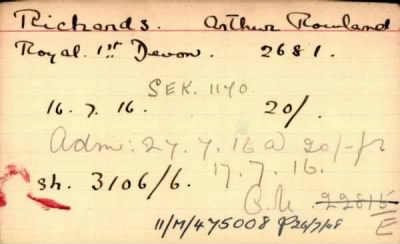 Richards. Arthur Rowland
Royal 1st Devon. 2681.
SEK. 1170.
16. 7. 16. 20/.
Adm: 27. 7. 16 @ 20/- fr
17. 7. 16.
sh. 3106/6.
22815
E
11/M/475008